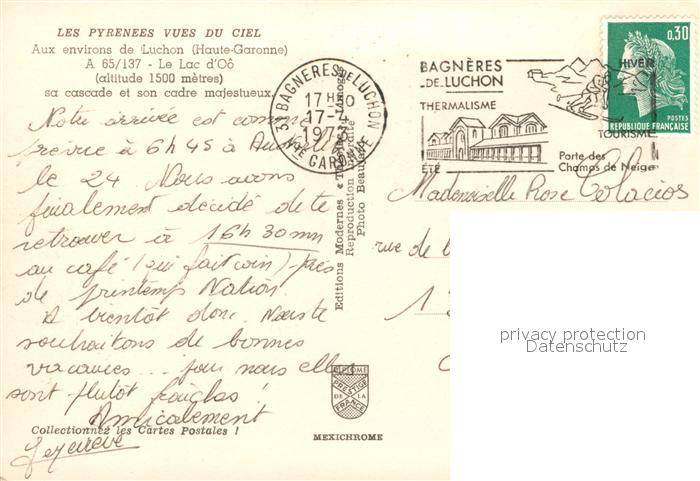 LES PYRENEES VUES DU CIEL
Aux environs de Luchon (Haute-Garonne)
A 65/137 - Le Lac d'OÔ
(altitude 1500 mètres)
sa cascade et son cadre majestueux
Notre arrivée est comme
prévue à 6h 45 à Austerlitz
le 24 Nous avons
finalement décidé de te
retrouver à 16h 30mn
au café (qui fait coin) près
de printemps Nation
A bientôt donc. Nous te
souhaitons de bonnes
vacances... pour nous elles
sont plutôt fraîches !
Amicalement
Collectionnez les Cartes Postales !
Editions Modernes « Théojac » Limoges
Reproduction interdite
Photo Beaujard
DIPLOME
PRESTIGE
DE LA
FRANCE
MEXICHROME
31 BAGNERES DE LUCHON
17 H
17-4
HTE GARONNE
BAGNÈRES
-DE-LUCHON
THERMALISME
ÉTÉ
HIVER
TOURISME
Porte des
Champs de Neige
0,30
REPUBLIQUE FRANÇAISE
Mademoiselle Rose Colacios
rue de
privacy protection
Datenschutz